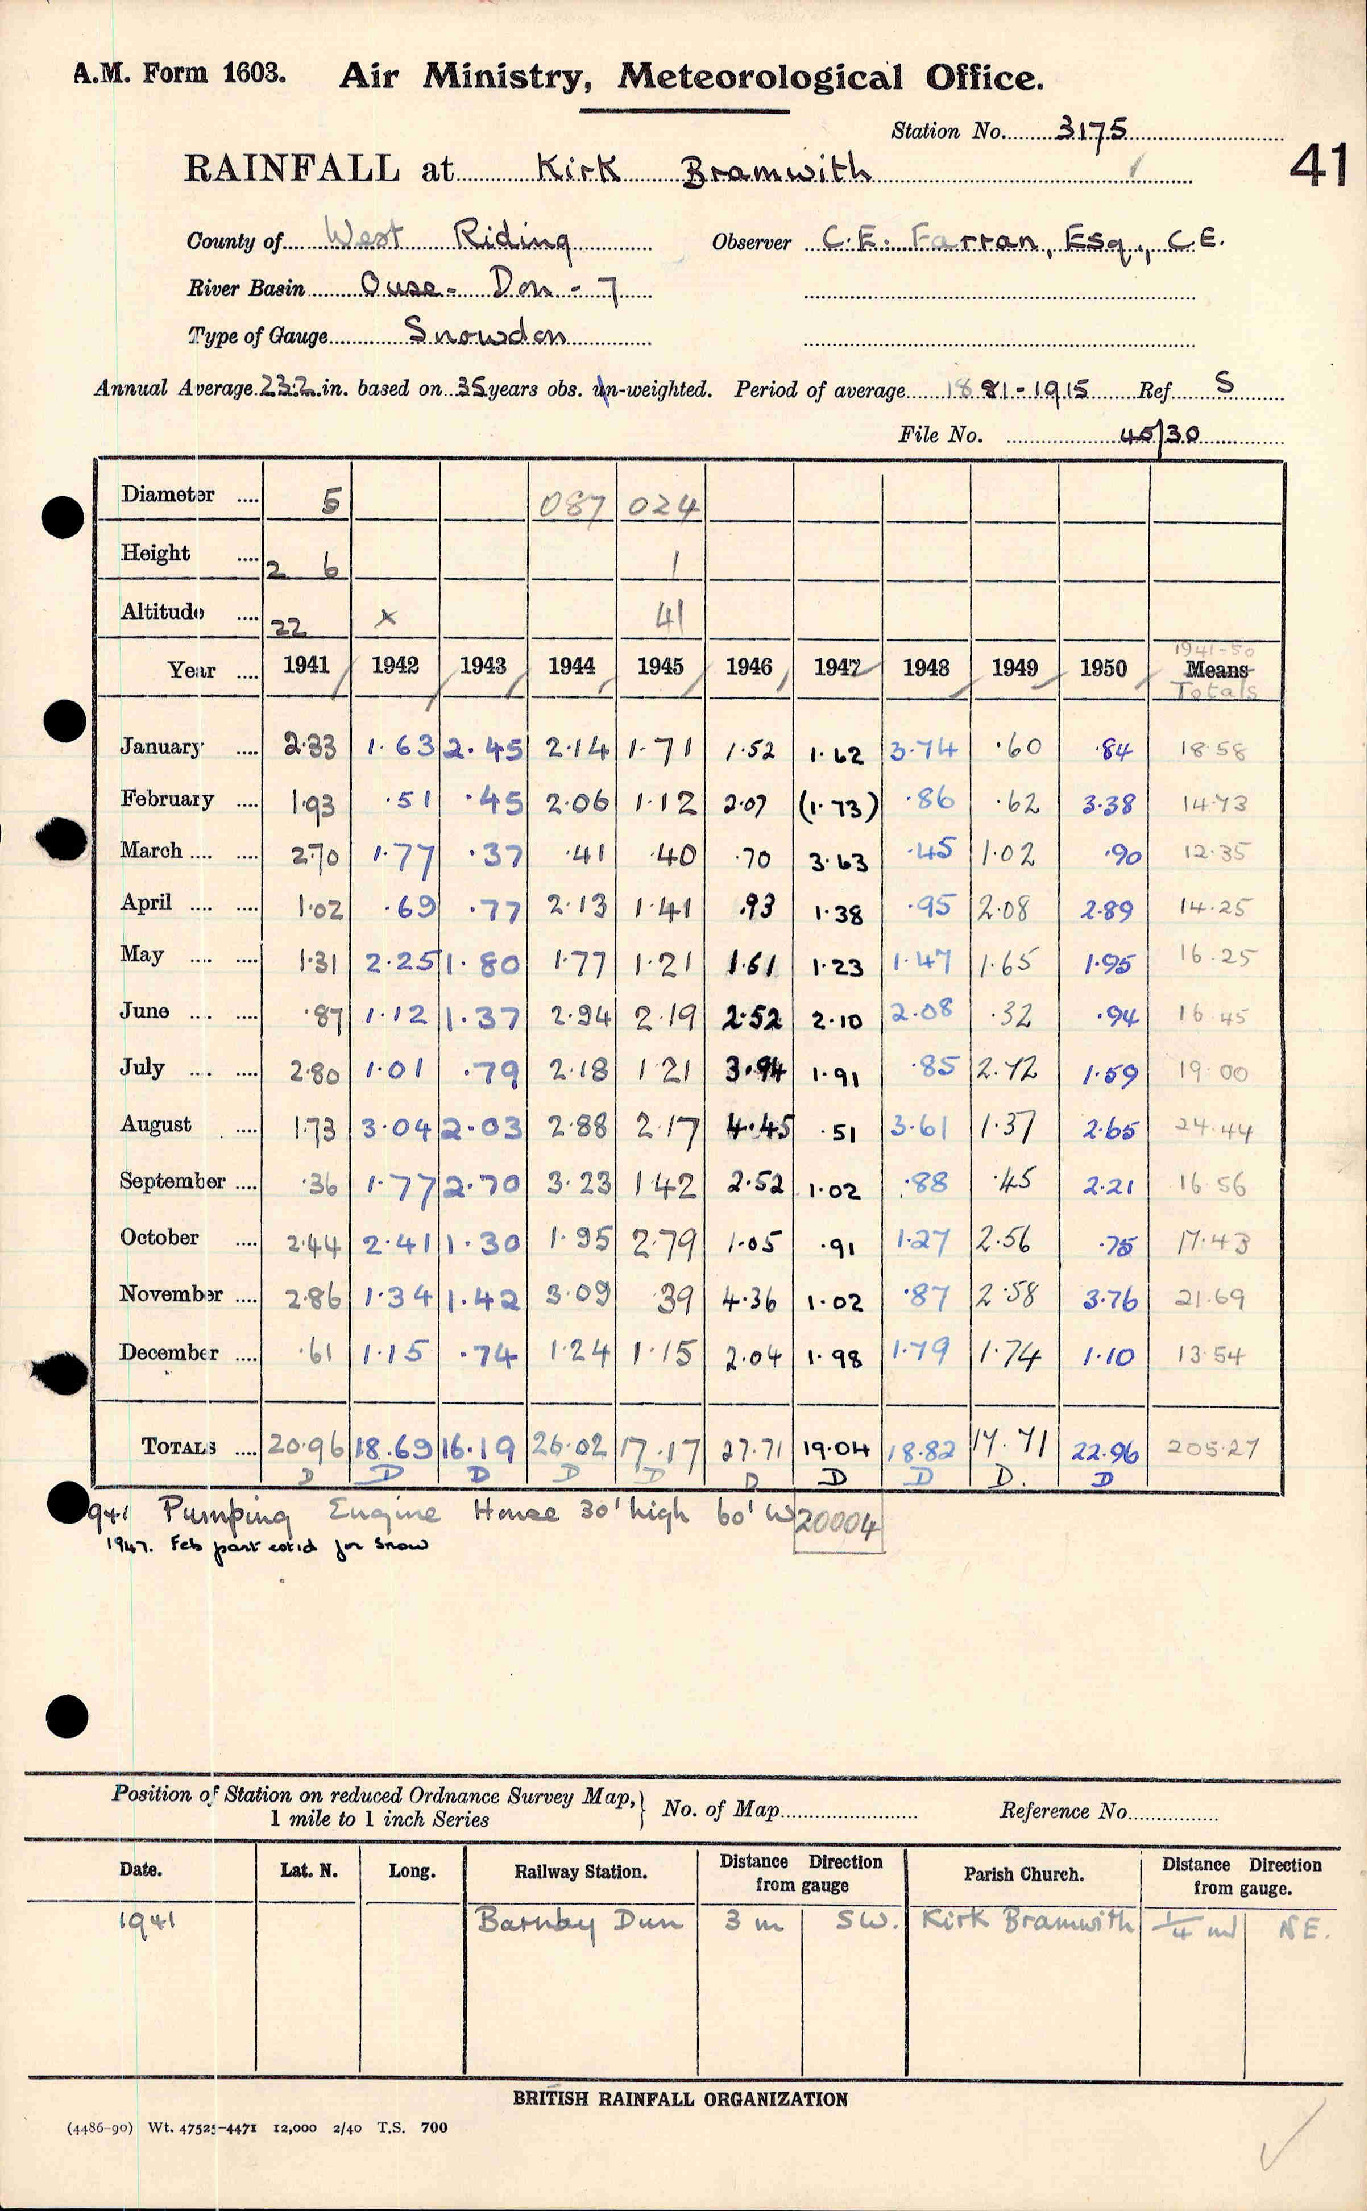 A.M. Form 1603. Air Ministry, Meteorological Office.
Station No. 3175
RAINFALL at Kirk Bramwith
41
County of West Riding Observer C.E. Farran, Esq., C.E.
River Basin Ouse - Don - 7
Type of Gauge Snowdon
Annual Average 23.2 in. based on 35 years obs. un-weighted. Period of average 1881-1915 Ref. S
File No. 45/30
Diameter .... 5 087 024
Height .... 2 6 1
Altitude .... 22 x 41
1941-50
Year .... 1941 1942 1943 1944 1945 1946 1947 1948 1949 1950 Means
Totals
January .... 2.33 1.63 2.45 2.14 1.71 1.52 1.62 3.74 .60 .84 18.58
February .... 1.93 .51 .45 2.06 1.12 2.07 (1.73) .86 .62 3.38 14.73
March .... .... 2.70 1.77 .37 .41 .40 .70 3.63 .45 1.02 .90 12.35
April .... .... 1.02 .69 .77 2.13 1.41 .93 1.38 .95 2.08 2.89 14.25
May .... .... 1.31 2.25 1.80 1.77 1.21 1.61 1.23 1.47 1.65 1.95 16.25
June .... .... .87 1.12 1.37 2.94 2.19 2.52 2.10 2.08 .32 .94 16.45
July .... .... 2.80 1.01 .79 2.18 1.21 3.94 1.91 .85 2.72 1.59 19.00
August .... 1.73 3.04 2.03 2.88 2.17 4.45 .51 3.61 1.37 2.65 24.44
September .... .36 1.77 2.70 3.23 1.42 2.52 1.02 .88 .45 2.21 16.56
October .... 2.44 2.41 1.30 1.95 2.79 1.05 .91 1.27 2.56 .75 17.43
November .... 2.86 1.34 1.42 3.09 .39 4.36 1.02 .87 2.58 3.76 21.69
December .... .61 1.15 .74 1.24 1.15 2.04 1.98 1.79 1.74 1.10 13.54
TOTALS .... 20.96 18.69 16.19 26.02 17.17 27.71 19.04 18.82 17.71 22.96 205.27
D D D D D D D D D. D
1941 Pumping Engine House 30' high 60' W 20004
1947. Feb part estd for snow
Position of Station on reduced Ordnance Survey Map, 1 mile to 1 inch Series } No. of Map Reference No.
Date. Lat. N. Long. Railway Station. Distance Direction from gauge Parish Church. Distance Direction from gauge.
1941 Barnby Dun 3 m SW. Kirk Bramwith 1/4 ml NE.
BRITISH RAINFALL ORGANIZATION
(4486-90) Wt. 47525-4471 12,000 2/40 T.S. 700